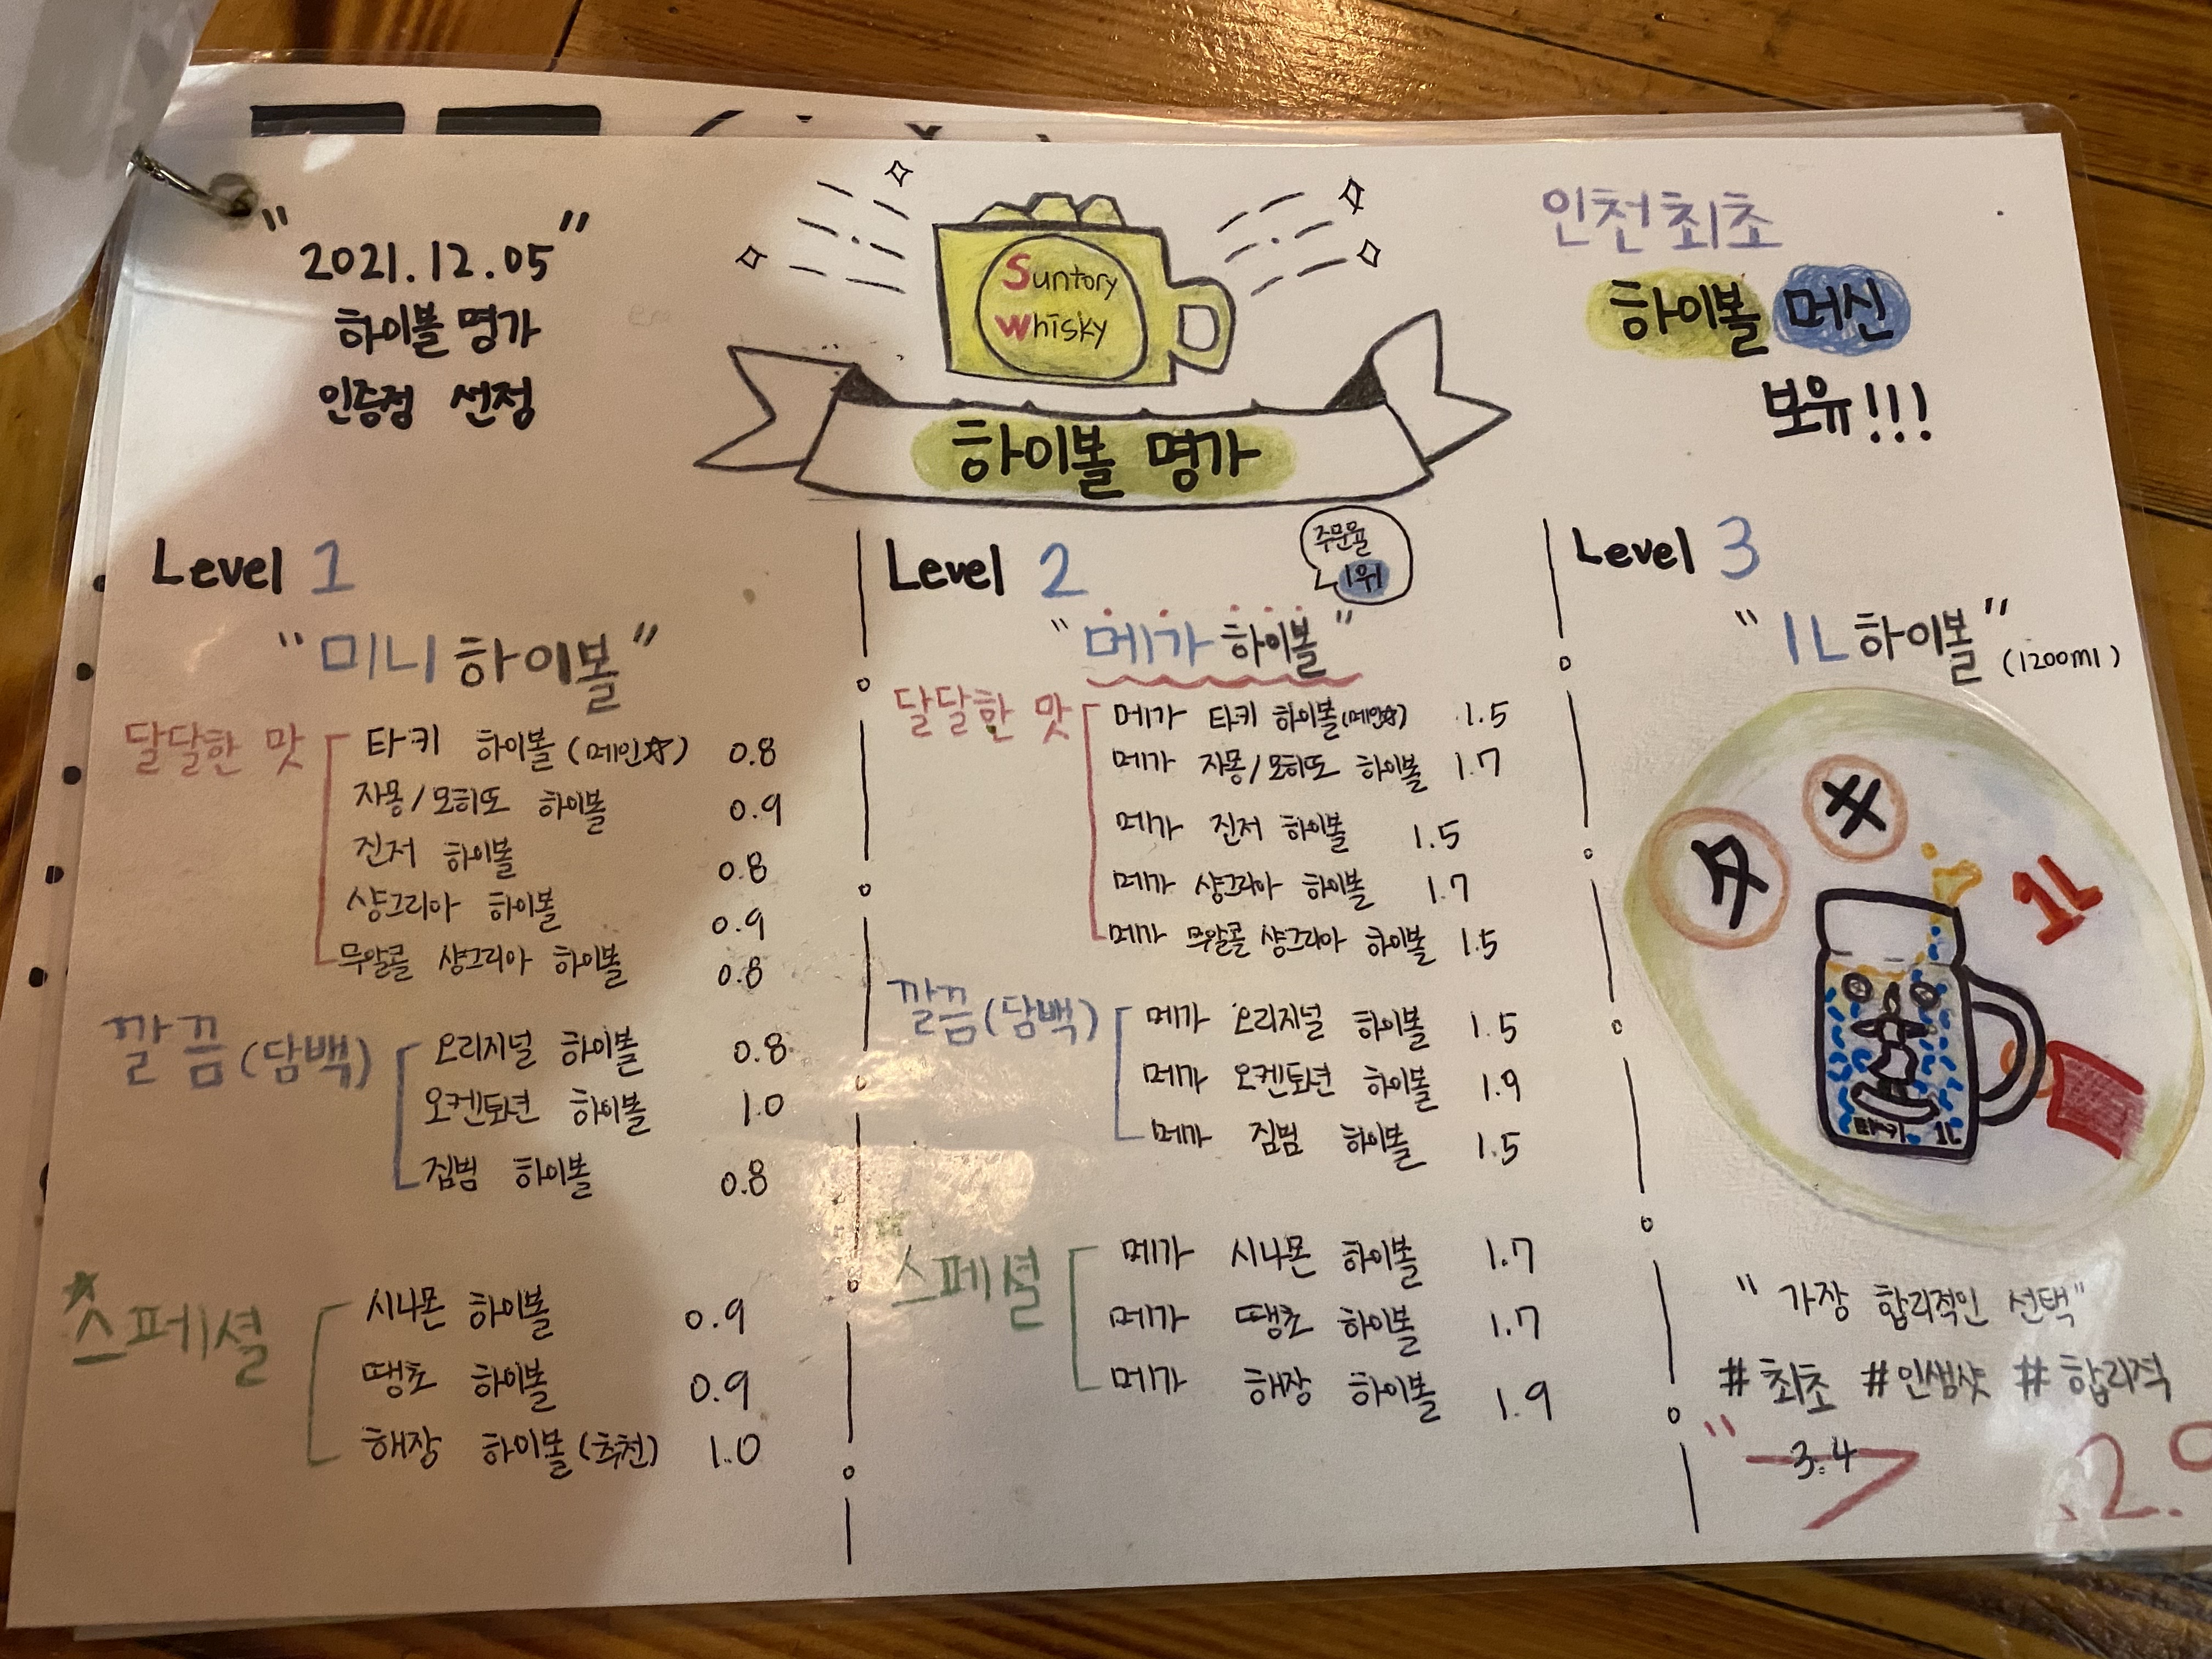 "2021.12.05"
하이볼 명가
인증점 선정
Suntory
Whisky
하이볼 명가
인천최초
하이볼 머신
보유!!!
Level 1
"미니 하이볼"
달달한 맛
타키 하이볼 (메인☆) 0.8
자몽/모히또 하이볼 0.9
진저 하이볼 0.8
샹그리아 하이볼 0.9
무알콜 샹그리아 하이볼 0.8
깔끔(담백)
오리지널 하이볼 0.8
오켄토션 하이볼 1.0
짐빔 하이볼 0.8
스페셜
시나몬 하이볼 0.9
땡초 하이볼 0.9
해장 하이볼 (추천) 1.0
Level 2
주문율
1위
"메가 하이볼"
달달한 맛
메가 타키 하이볼(메인☆) 1.5
메가 자몽/모히또 하이볼 1.7
메가 진저 하이볼 1.5
메가 샹그리아 하이볼 1.7
메가 무알콜 샹그리아 하이볼 1.5
깔끔(담백)
메가 오리지널 하이볼 1.5
메가 오켄토션 하이볼 1.9
메가 짐빔 하이볼 1.5
스페셜
메가 시나몬 하이볼 1.7
메가 땡초 하이볼 1.7
메가 해장 하이볼 1.9
Level 3
"1L 하이볼"
(1200ml)
タ キ
1L
타키 1L
"가장 합리적인 선택"
#최초 #인생샷 #합리적
"3.4
2.9